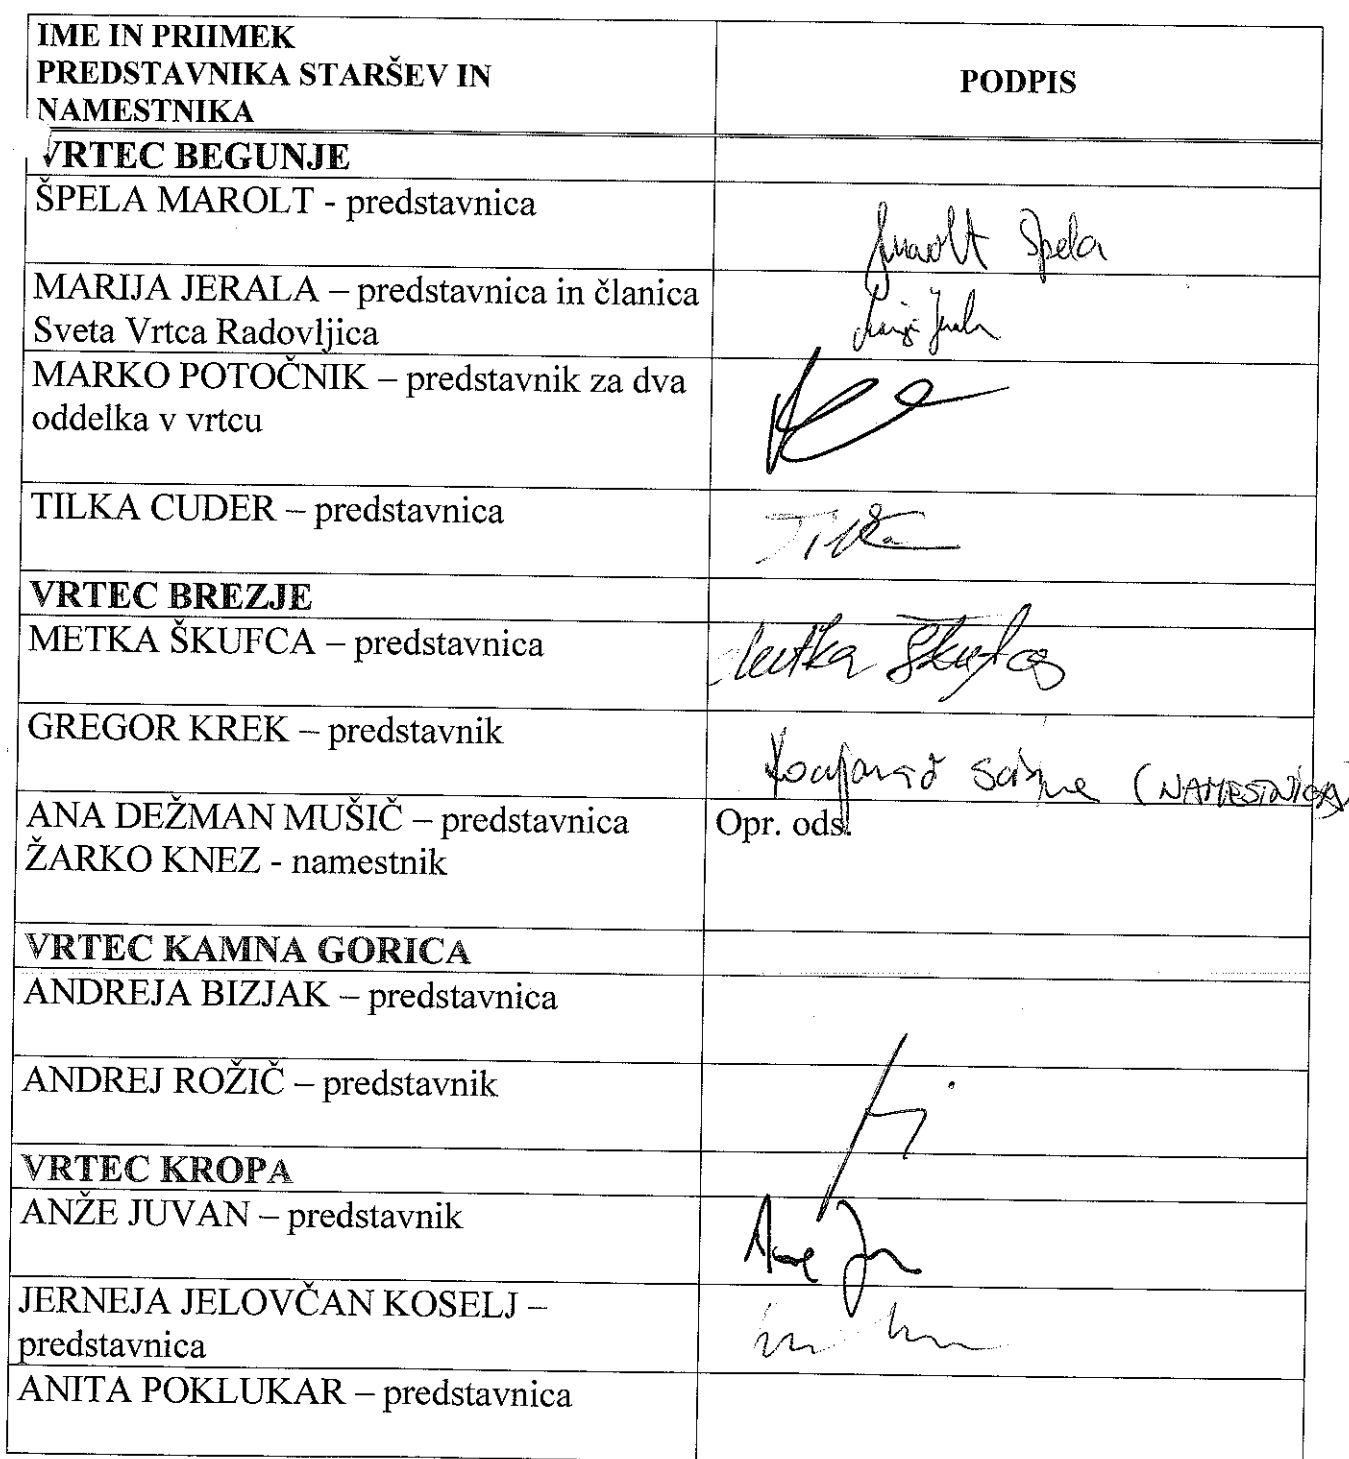 IME IN PRIIMEK
PREDSTAVNIKA STARŠEV IN
NAMESTNIKA
PODPIS
VRTEC BEGUNJE
ŠPELA MAROLT - predstavnica
Marolt Špela
MARIJA JERALA – predstavnica in članica
Sveta Vrtca Radovljica
MARKO POTOČNIK – predstavnik za dva
oddelka v vrtcu
TILKA CUDER – predstavnica
VRTEC BREZJE
METKA ŠKUFCA – predstavnica
Metka Škufca
GREGOR KREK – predstavnik
(NAMESTNICA)
ANA DEŽMAN MUŠIČ – predstavnica
ŽARKO KNEZ - namestnik
Opr. ods.
VRTEC KAMNA GORICA
ANDREJA BIZJAK – predstavnica
ANDREJ ROŽIČ – predstavnik
VRTEC KROPA
ANŽE JUVAN – predstavnik
JERNEJA JELOVČAN KOSELJ –
predstavnica
ANITA POKLUKAR – predstavnica